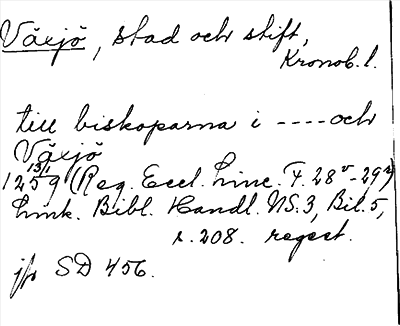 Växjö, stad och stift,
Kronob. l.
till biskoparna i ---- och
Växjö
13/1
1259 (Reg. Eccl. Linc. F. 28v-29r)
Link. Bibl. Handl. NS. 3, Bil. 5,
s. 208. regest.
jfr SD 456.